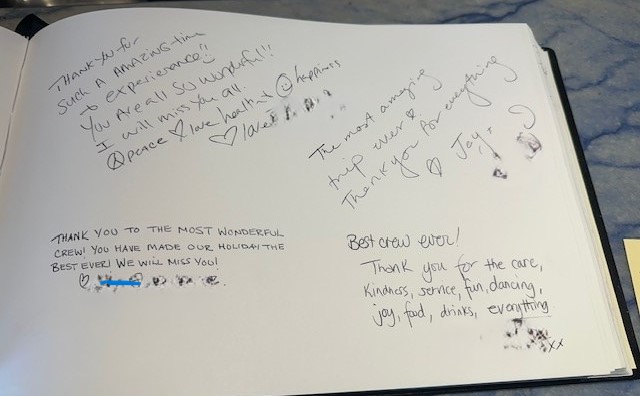 THANK YOU for
SUCH A AMAZING time
& experience!!
You ARE all SO WONDERFUL!!
I will miss you all.
peace love health & happiness
love
The most amazing
trip ever &
Thank you for everything
Joy!
THANK YOU TO THE MOST WONDERFUL
CREW! YOU HAVE MADE OUR HOLIDAY THE
BEST EVER! WE WILL MISS YOU!
Best crew ever!
Thank you for the care,
kindness, service, fun, dancing,
joy, food, drinks, everything
xx